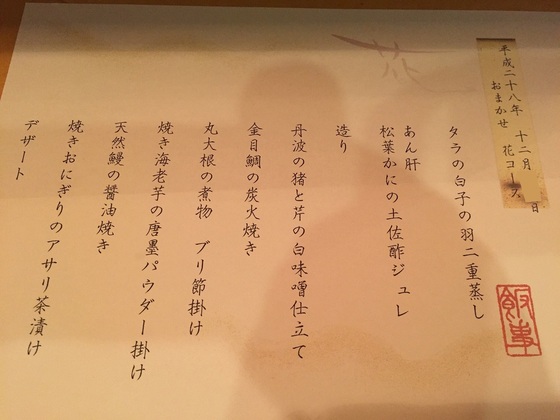 平成二十八年 十二月 日
おまかせ 花コース
タラの白子の羽二重蒸し
あん肝
松葉かにの土佐酢ジュレ
造り
丹波の猪と芹の白味噌仕立て
金目鯛の炭火焼き
丸大根の煮物 ブリ節掛け
焼き海老芋の唐墨パウダー掛け
天然鰻の醤油焼き
焼きおにぎりのアサリ茶漬け
デザート
花
飯事